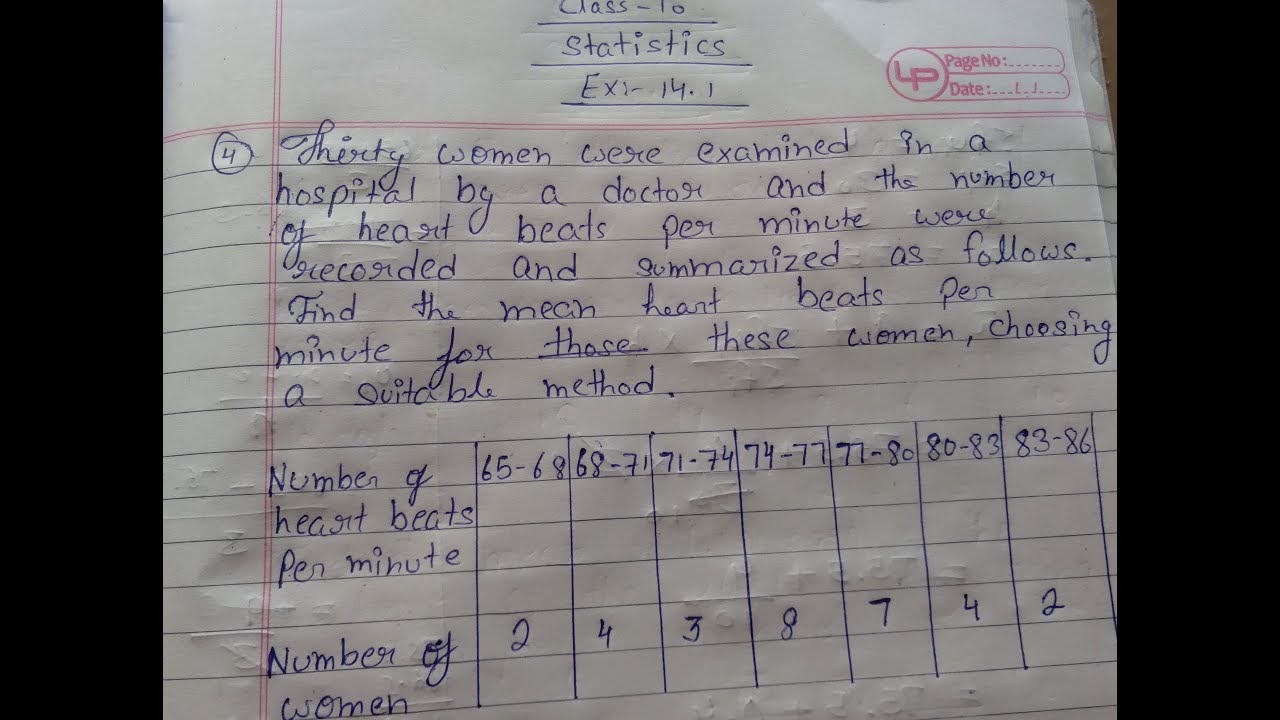 Class-10
Statistics
Ex:- 14.1
LP
Page No:.......
Date:...../...../.....
4 Thirty women were examined in a
hospital by a doctor and the number
of heart beats per minute were
recorded and summarized as follows.
Find the mean heart beats per
minute for those these women, choosing
a suitable method.
Number of 65-68 68-71 71-74 74-77 77-80 80-83 83-86
heart beats
Per minute
Number of 2 4 3 8 7 4 2
women